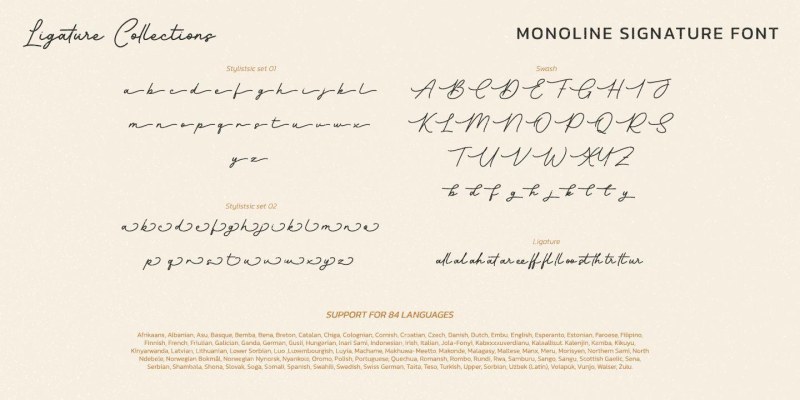 Ligature Collections
MONOLINE SIGNATURE FONT
Stylistsic set 01
a b c d e f g h i j k l
m n o p q r s t u v w x
y z
Stylistsic set 02
a b c d e f g h i j k l m n o
p q r s t u v w x y z
Swash
A B C D E F G H I J
K L M N O P Q R S
T U V W X Y Z
b d f g h j k l t y
Ligature
all al ah at ar ee ff fl ll oo st th tr tt ur
SUPPORT FOR 84 LANGUAGES
Afrikaans, Albanian, Asu, Basque, Bemba, Bena, Breton, Catalan, Chiga, Colognian, Cornish, Croatian, Czech, Danish, Dutch, Embu, English, Esperanto, Estonian, Faroese, Filipino,
Finnish, French, Friulian, Galician, Ganda, German, Gusii, Hungarian, Inari Sami, Indonesian, Irish, Italian, Jola-Fonyi, Kabuverdianu, Kalaallisut, Kalenjin, Kamba, Kikuyu,
Kinyarwanda, Latvian, Lithuanian, Lower Sorbian, Luo, Luxembourgish, Luyia, Machame, Makhuwa-Meetto, Makonde, Malagasy, Maltese, Manx, Meru, Morisyen, Northern Sami, North
Ndebele, Norwegian Bokmål, Norwegian Nynorsk, Nyankole, Oromo, Polish, Portuguese, Quechua, Romansh, Rombo, Rundi, Rwa, Samburu, Sango, Sangu, Scottish Gaelic, Sena,
Serbian, Shambala, Shona, Slovak, Soga, Somali, Spanish, Swahili, Swedish, Swiss German, Taita, Teso, Turkish, Upper, Sorbian, Uzbek (Latin), Volapük, Vunjo, Walser, Zulu.